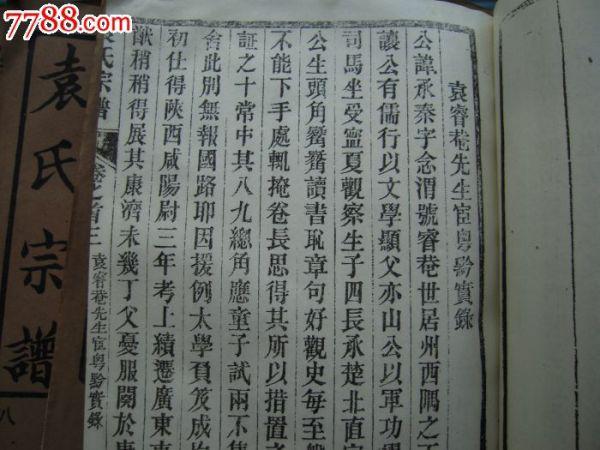 7788.com
袁睿菴先生宦粤黔實錄
公諱承泰字念渭號睿菴世居州西隅之
讓公有儒行以文學顯父亦山公以軍功
司馬坐受寧夏觀察生子四長承楚北直
公生頭角觺觺讀書恥章句好觀史每至
不能下手處輒掩卷長思得其所以措置之
証之十常中其八九總角應童子試兩不售
舍此別無報國路耶因援例太學負笈成
初仕得陝西咸陽尉三年考上績遷廣東
猷稍稍得展其康濟未幾丁父憂服闋於
氏宗譜 卷之首三 袁睿菴先生宦粤黔實錄
袁氏宗譜
八